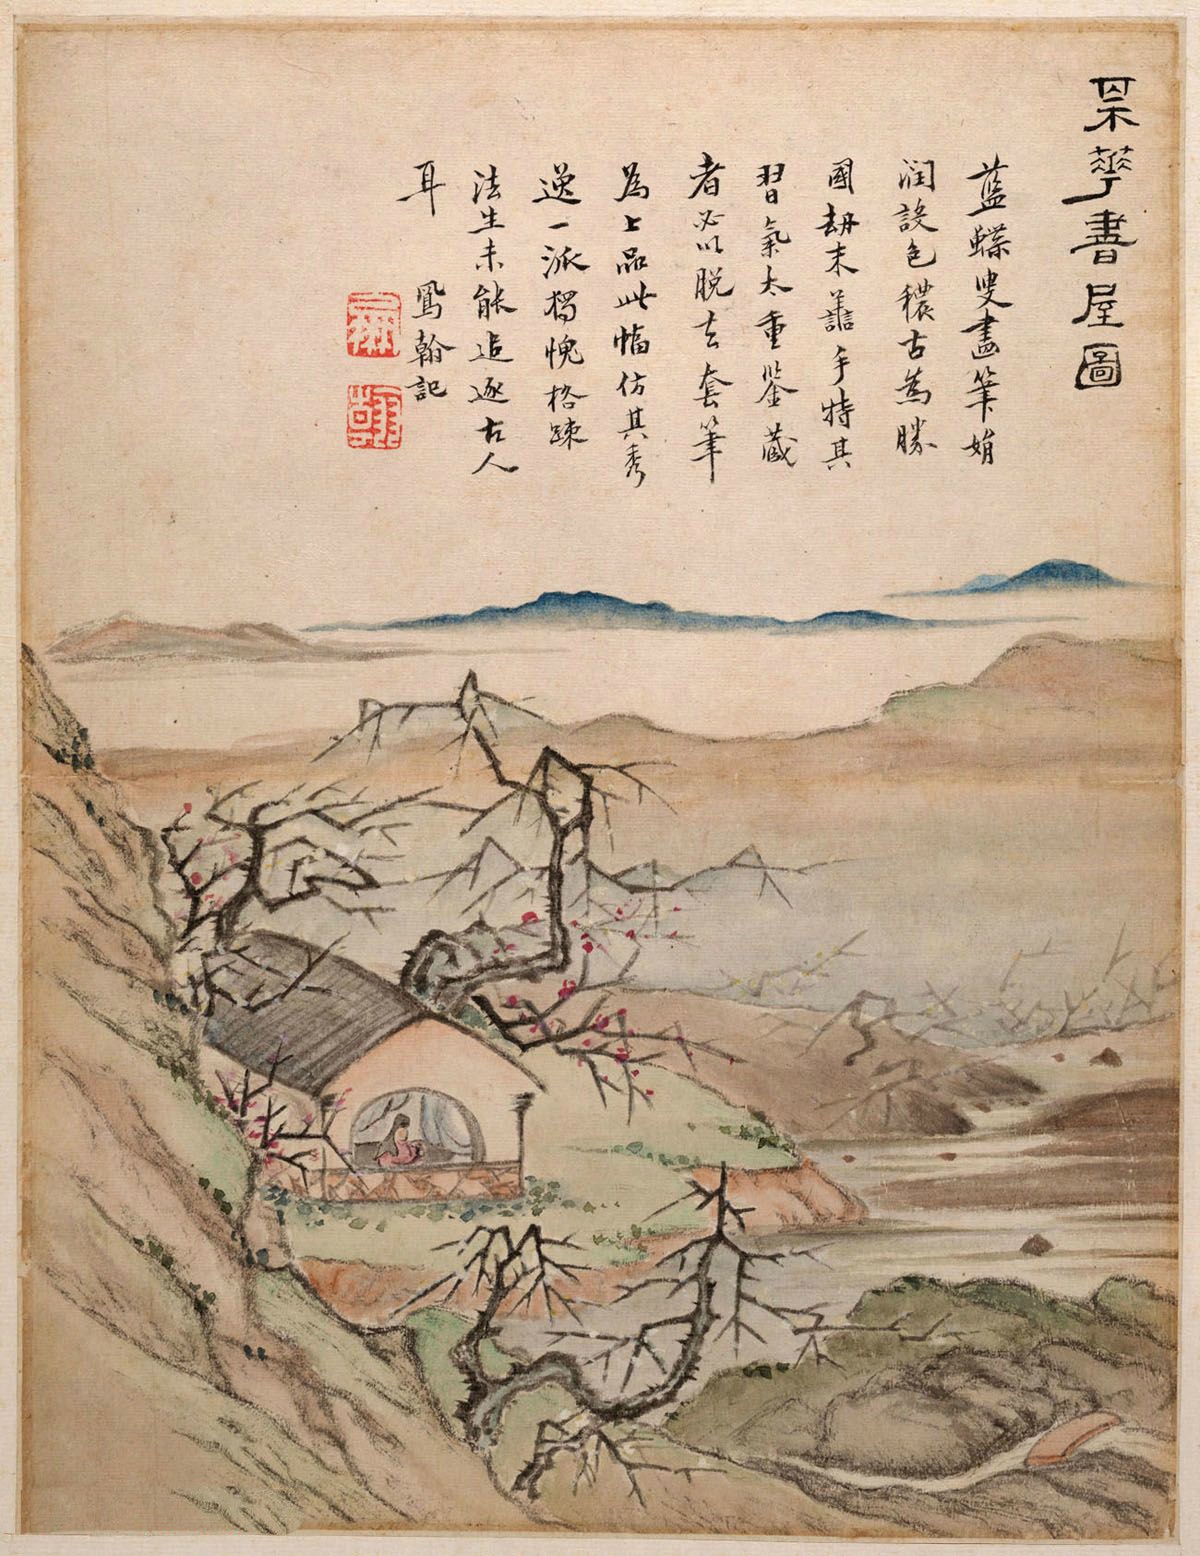 書屋圖
藍蝶叟畫筆娟
潤設色穠古為勝
國劫末 手特其
習氣太重鉴藏
者必以脱去套筆
為上品此幅仿其秀
逸一派獨愧格疎
法生未能追逐古人
耳
鳳翰記